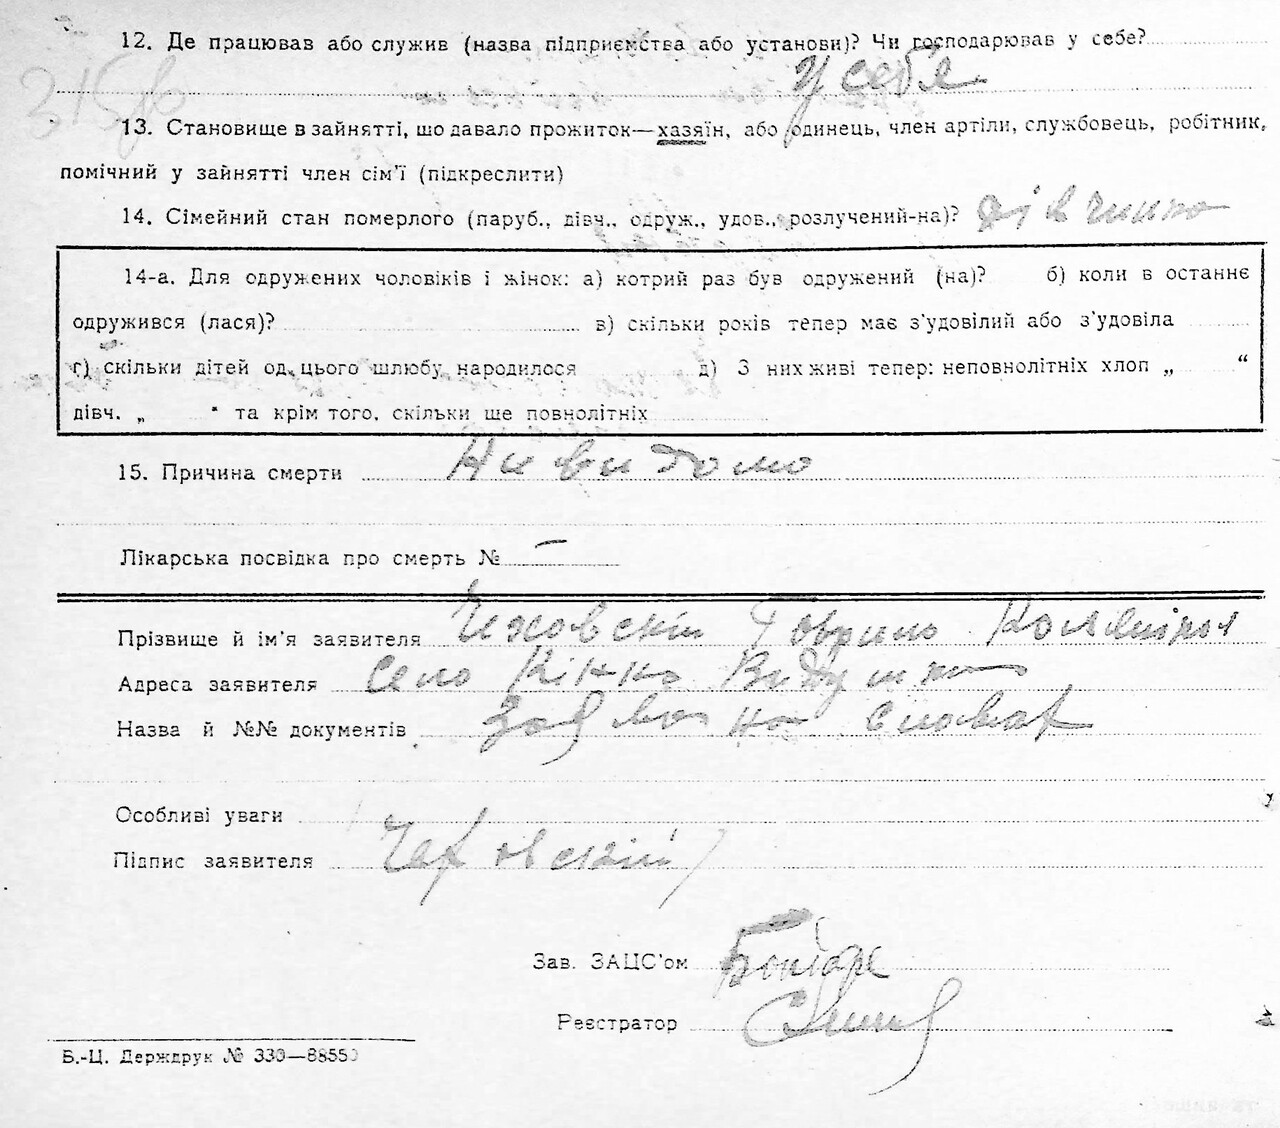 12. Де працював або служив (назва підприємства або установи)? Чи господарював у себе?
У себе
13. Становище в зайнятті, що давало прожиток—хазяїн, або одинець, член артіли, службовець, робітник,
помічний у зайнятті член сім'ї (підкреслити)
14. Сімейний стан померлого (паруб., дівч., одруж., удов., розлучений-на)? дівчинка
14-а. Для одружених чоловіків і жінок: а) котрий раз був одружений (на)? б) коли в останнє
одружився (лася)? в) скільки років тепер має з'удовілий або з'удовіла
г) скільки дітей од цього шлюбу народилося д) З них живі тепер: неповнолітніх хлоп „ “
дівч. „ “ та крім того, скільки ще повнолітніх
15. Причина смерти Ни видомо
Лікарська посвідка про смерть № —
Прізвище й ім'я заявителя Чеховскій Гаврило
Адреса заявителя Село
Назва й №№ документів на словах
Особливі уваги
Підпис заявителя Чеховский
Зав. ЗАЦС'ом
Реєстратор
Б.-Ц. Держдрук № 330—8855